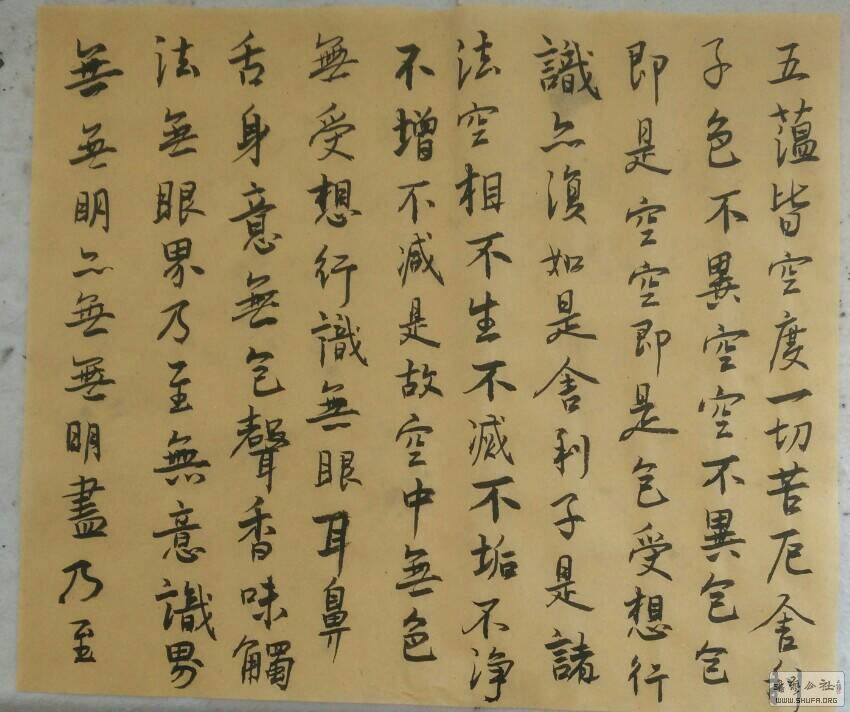 五蕴皆空度一切苦厄舍利
子色不異空空不異色色
即是空空即是色受想行
識亦須如是舍利子是諸
法空相不生不滅不垢不净
不增不减是故空中無色
無受想行識無眼耳鼻
舌身意無色聲香味觸
法無眼界乃至無意識界
無無明亦無無明盡乃至
公社
WWW.SHUFA.ORG